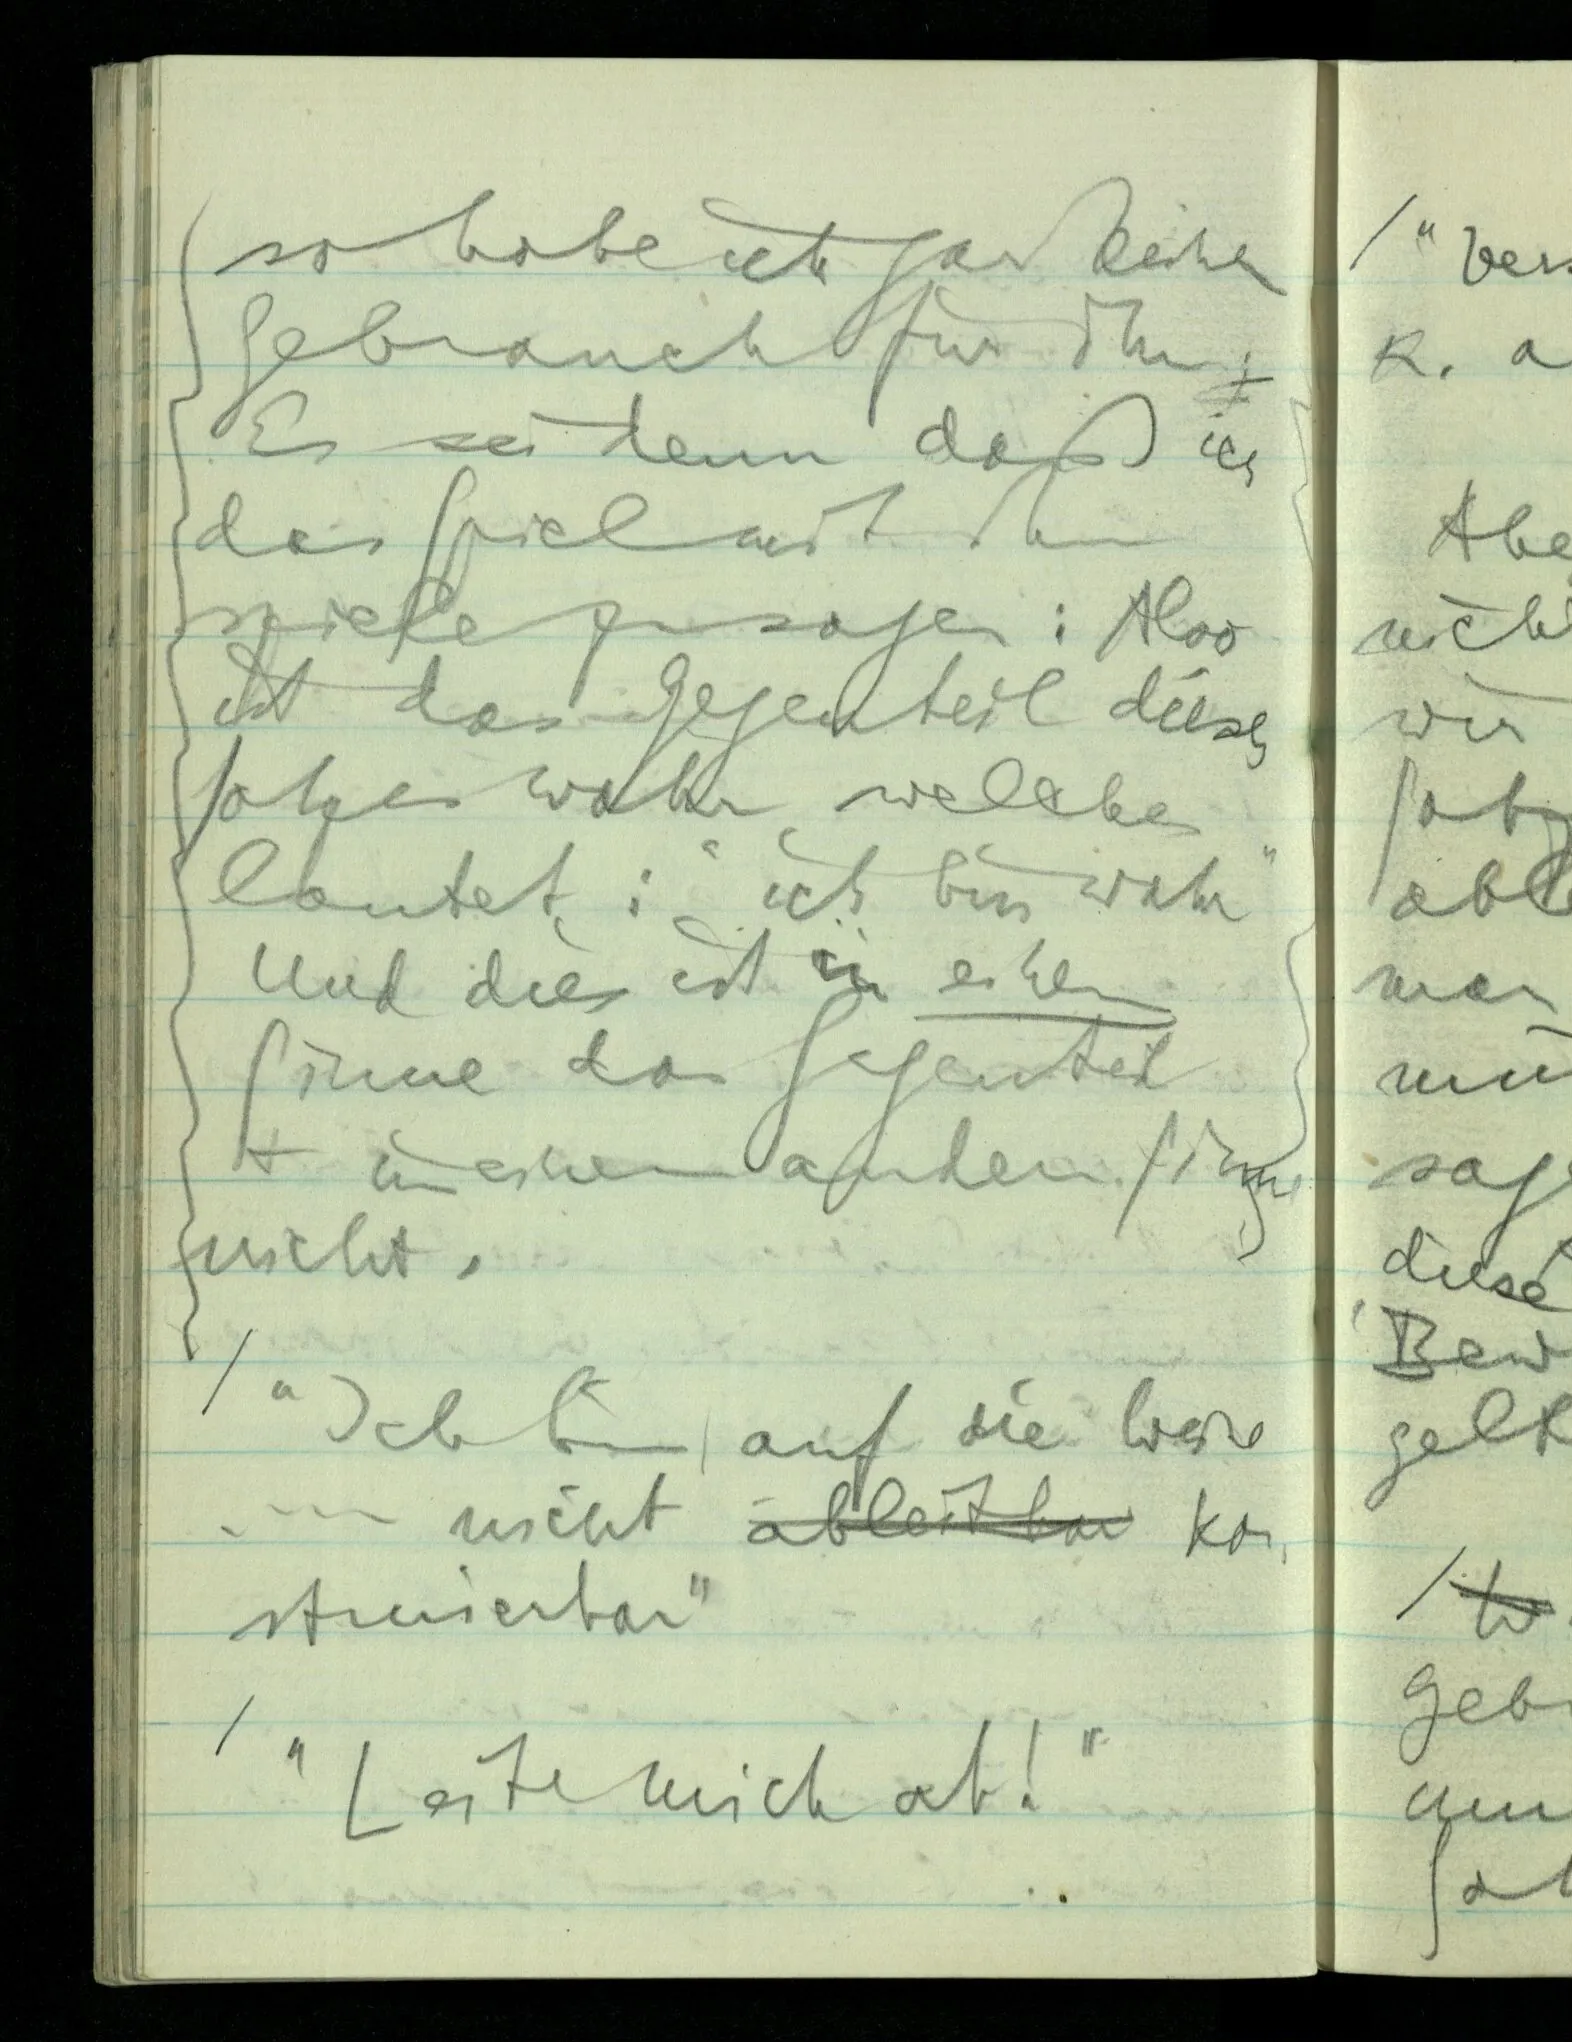 so habe ich gar keinen
Gebrauch für ihn;
Es sei denn daß ich
das Spiel mit ihm
spiele zu sagen: Also
ist das Gegenteil dieses
Satzes wahr, welches
lautet: "ich bin wahr"
Und dies ist in einem
Sinne das Gegenteil
+ in einem andern Sinne
nicht.
/ "Ich bin auf die Weise
... nicht ableitbar kon-
struierbar"
/ "Leite mich ab!"
/ "Vers
K. a
Abe
nicht
wir
Satz
able
man
mü
sage
diese
Bew
gelt
/ W
Geb
am
Sat